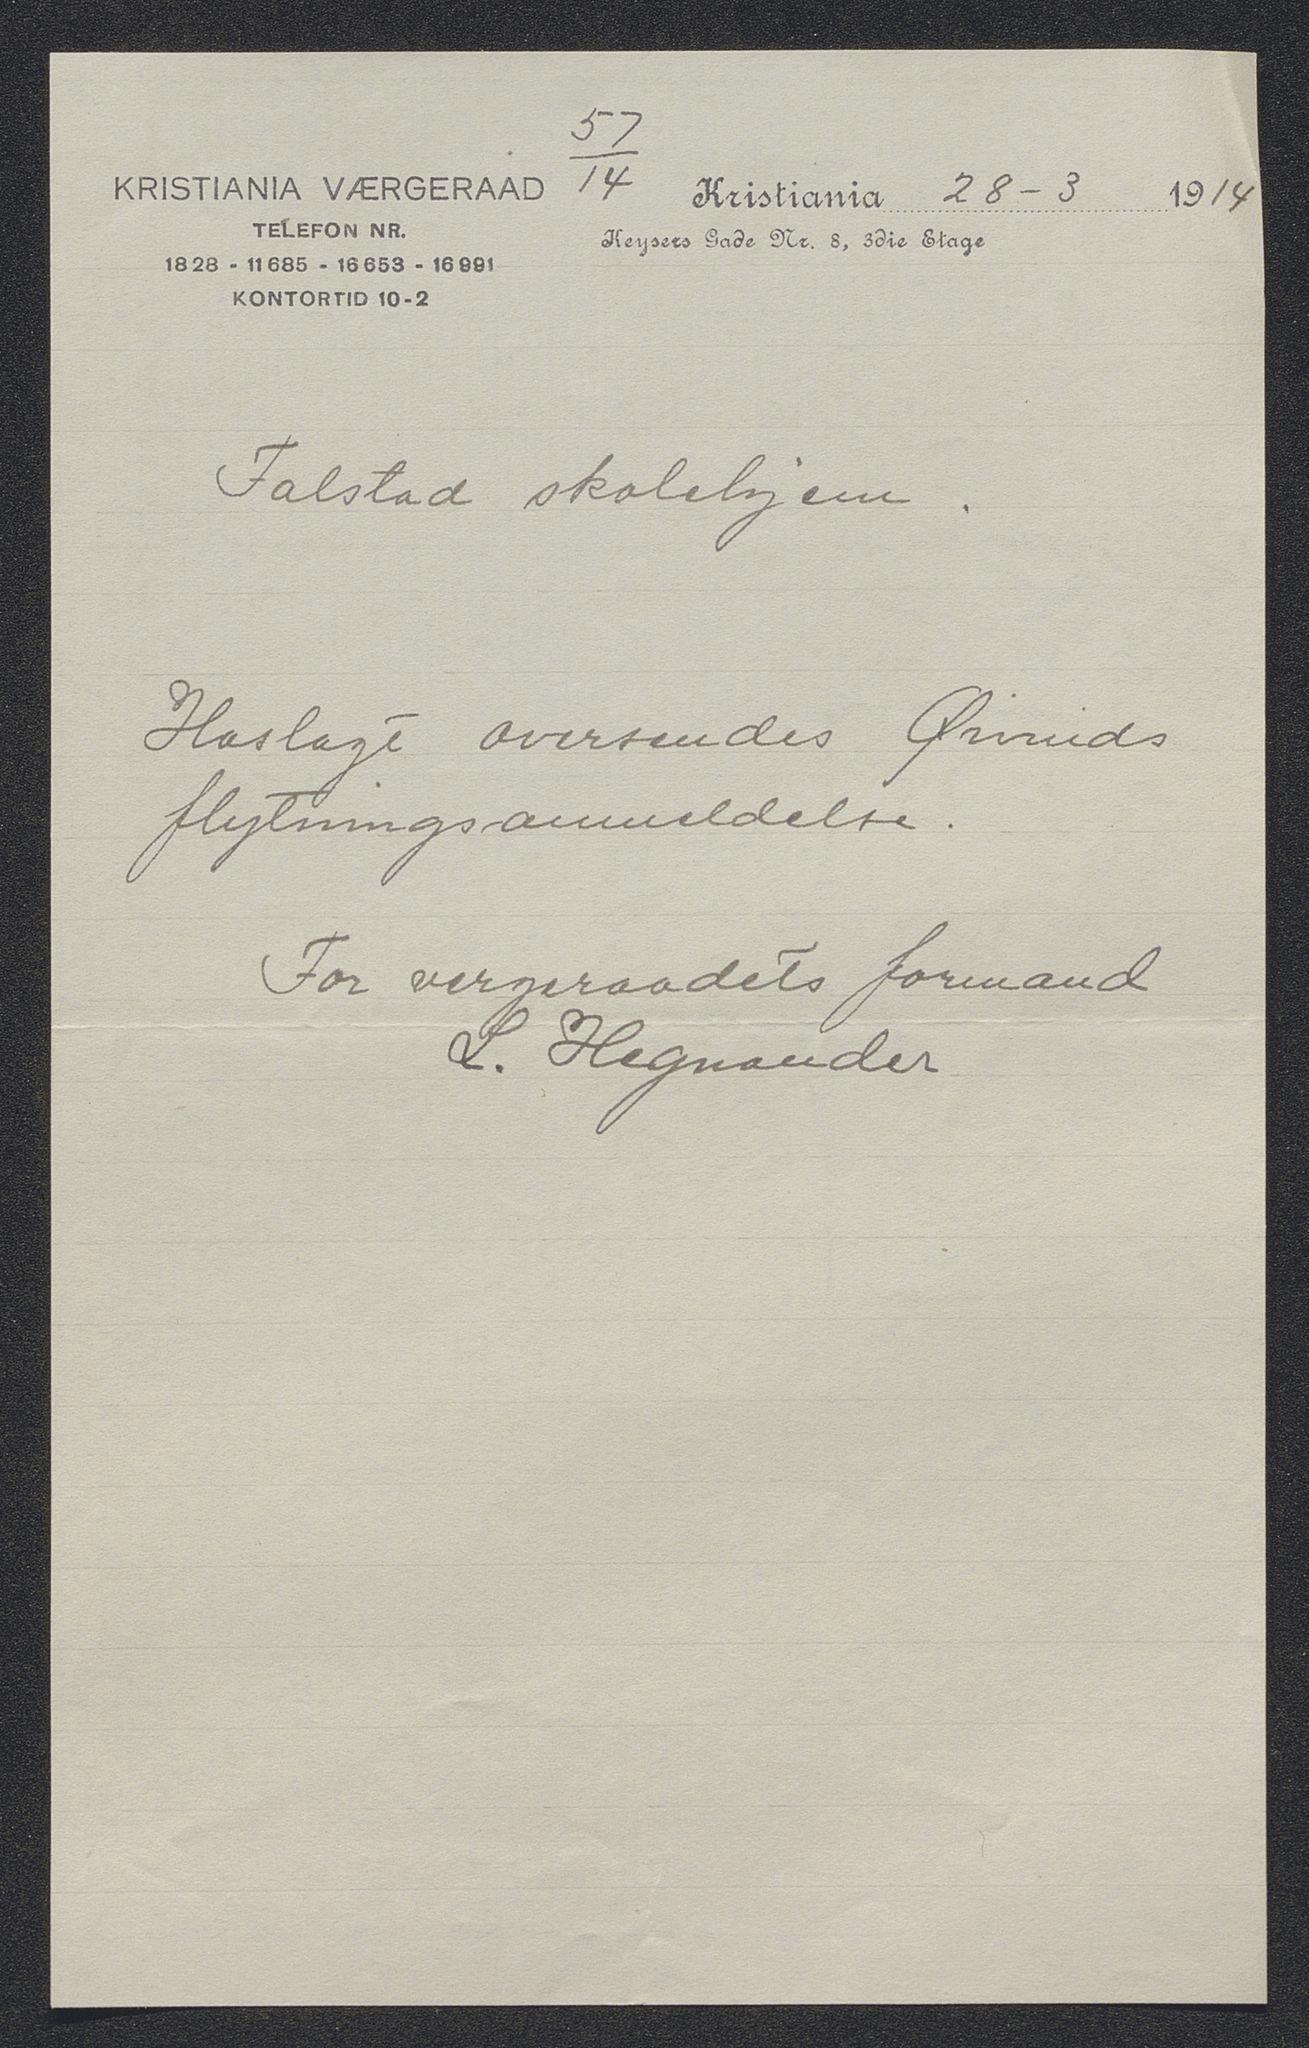 57
14
KRISTIANIA VÆRGERAAD
TELEFON NR.
1828 - 11685 - 16653 - 16991
KONTORTID 10-2
Kristiania 28-3 1914
Keysers Gade Nr. 8, 3die Etage
Falstad skolehjem.
Hoslagt oversendes Øivinds
flytningsanmeldelse.
For vergeraadets formand
L. Hegnander